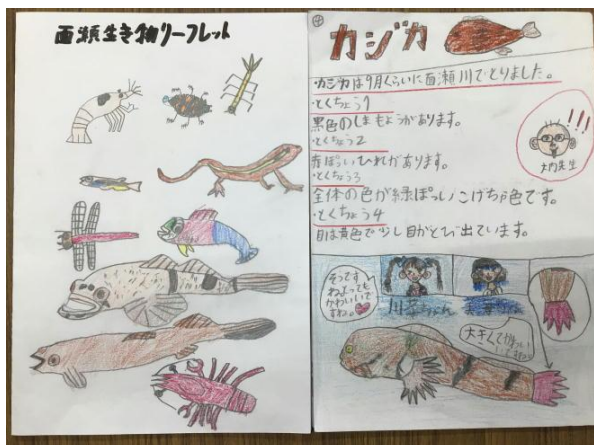 面瀬生き物リーフレット
カジカ
カジカは9月くらいに面瀬川でとりました。
・とくちょう1
黒色のしまもようがあります。
・とくちょう2
赤ぽいひれがあります。
・とくちょう3
全体の色が緑ぽいこげちゃ色です。
・とくちょう4
目は黄色で少し目がとび出ています。
!!!
そうです
ねとっても
かわいいで
すね。
大きくてかわい
いですね